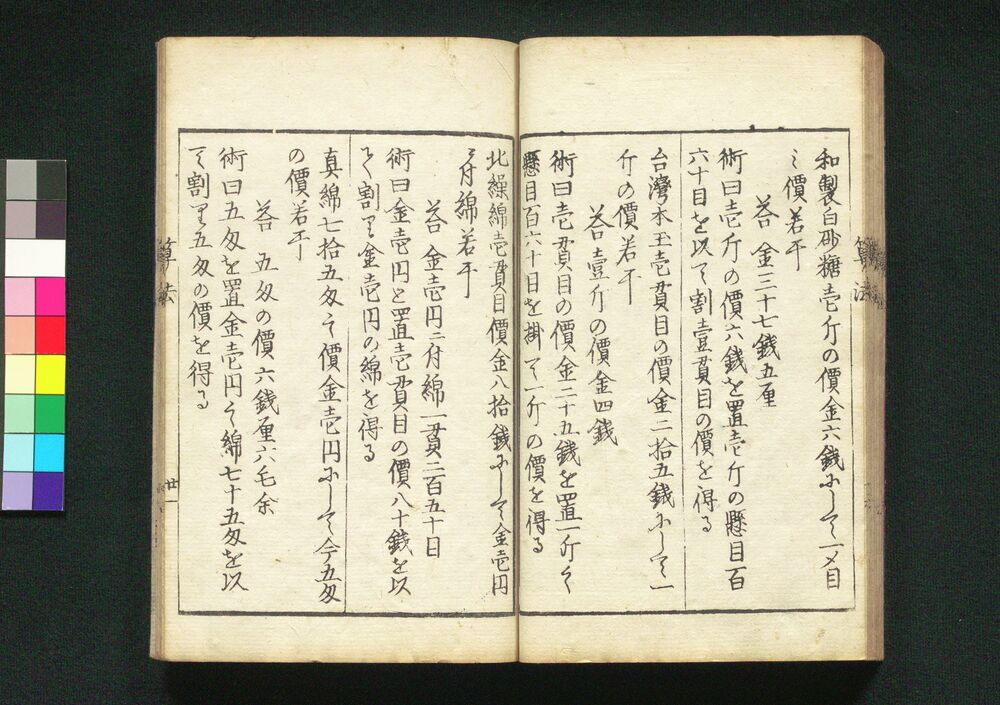 和製白砂糖壱斤の價金六銭にして一〆目
之價若干
答 金三十七銭五厘
術曰壱斤の價六銭を置壱斤の懸目百
六十目を以て割壹貫目の價を得る
台灣本玉壱貫目の價金二拾五銭にして一
斤の價若干
答壹斤の價金四銭
術曰壱貫目の價金二十五銭を置一斤之
懸目百六十目を掛て一斤の價を得る
北繰綿壱貫目價金八拾銭にして金壱円
ニ付綿若干
答 金壱円ニ付綿一貫二百五十目
術曰金壱円を置壱貫目の價八十銭を以
て割り金壱円の綿を得る
真綿七拾五匁之價金壱円にして今五匁
の價若干
答 五匁の價六銭厘六毛余
術曰五匁を置金壱円之綿七十五匁を以
て割り五匁の價を得る
算法
廿一